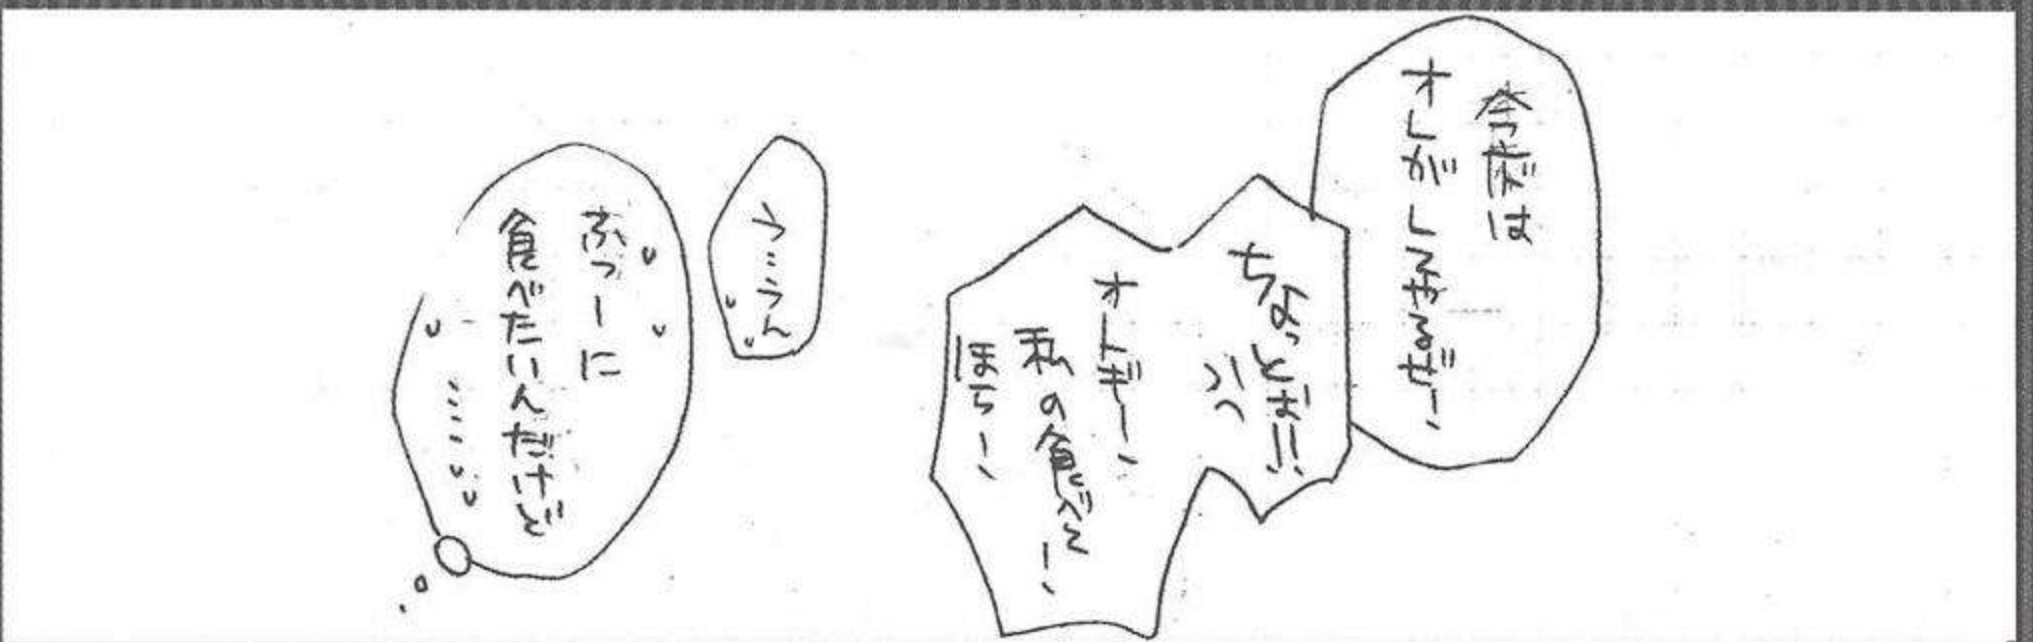 今度は
オレがしてやるぜー
ちょっとぉ!!
オトギー
私の食べてー
ほら、
う……うん
ふつーに
食べたいんだけど
……